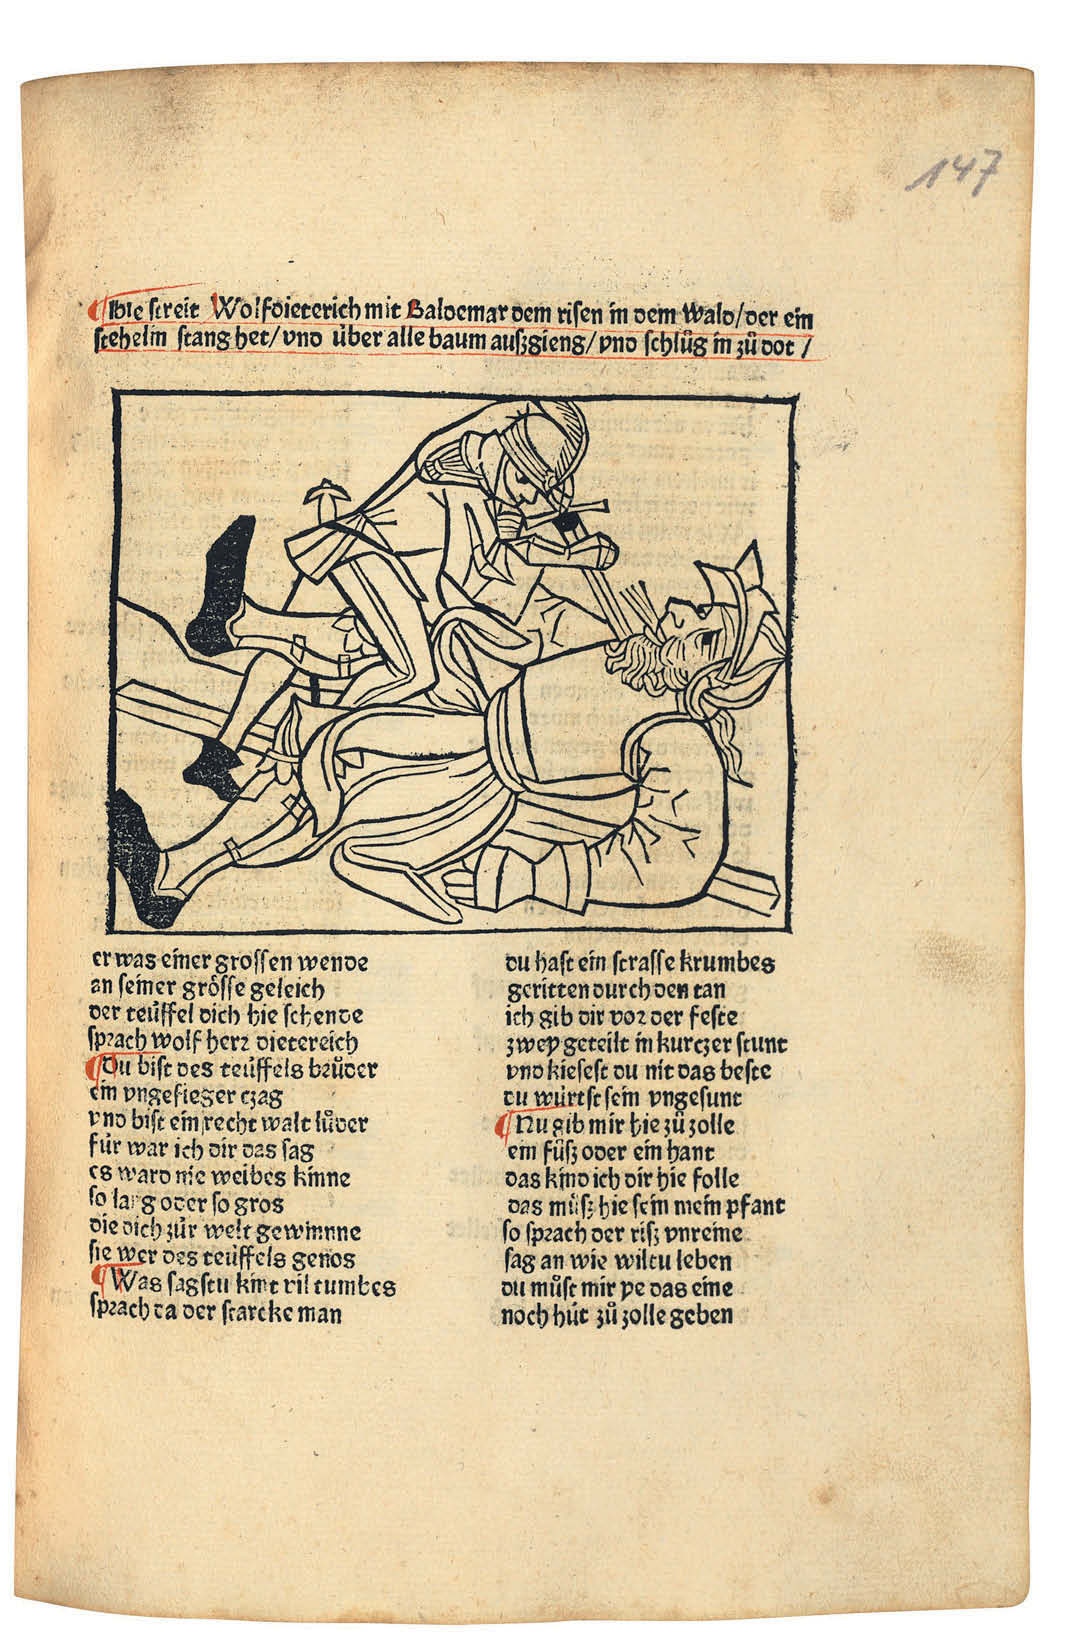 147
Hie streit Wolfdieterich mit Baldemar dem risen in dem Wald/der ein
stehelin stang het/vnd über alle baum auſzgieng/vnd schlůg in zů dot/
er was einer grossen wende
an seiner grösse geleich
der teüffel dich hie schende
sprach wolf herz dietereich
Du bist des teüffels brůder
ein vngefieger czag
vnd bist ein recht walt lůder
für war ich dir das sag
es ward nie weibes kinne
so lang oder so gros
die dich zůr welt gewinnne
sie wer des teüffels genos
Was sagstu kint vil tumbes
sprach da der starcke man
du hast ein strasse krumbes
geritten durch den tan
ich gib dir vor der feste
zwey geteilt in kurczer stunt
vnd kiesest du nit das beste
du würtst sein vngesunt
Nu gib mir hie zů zolle
ein fůſz oder ein hant
das kind ich dir hie folle
das můſz hie sein mein pfant
so sprach der riſz vnreine
sag an wie wiltu leben
du můst mir ye das eine
noch hüt zů zolle geben